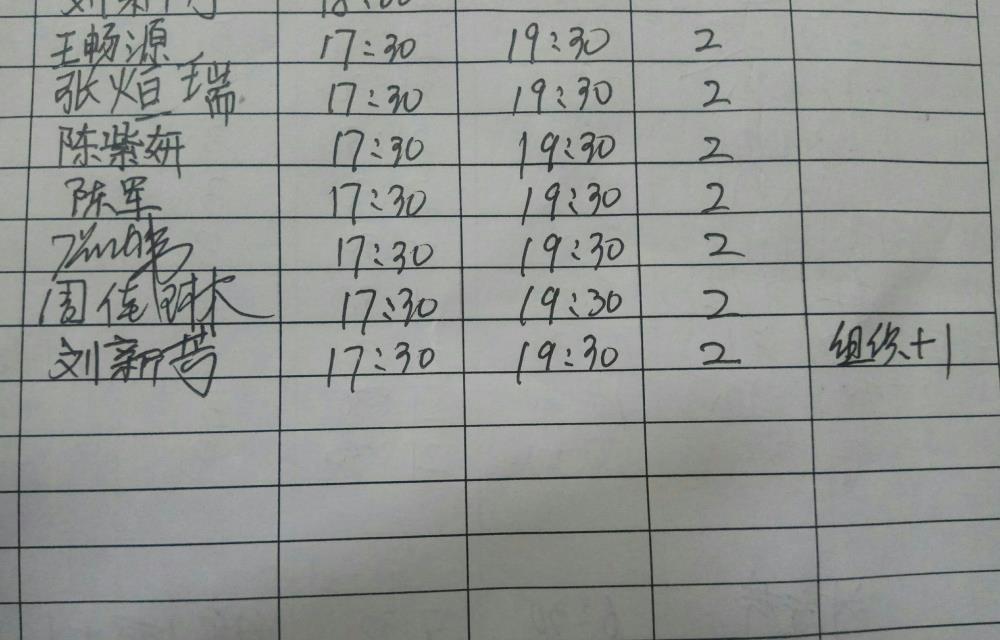 刘新芳 18:00
王畅源 17:30 19:30 2
张烜瑞 17:30 19:30 2
陈紫妍 17:30 19:30 2
陈军 17:30 19:30 2
17:30 19:30 2
周佳 17:30 19:30 2
刘新芳 17:30 19:30 2 组织+1